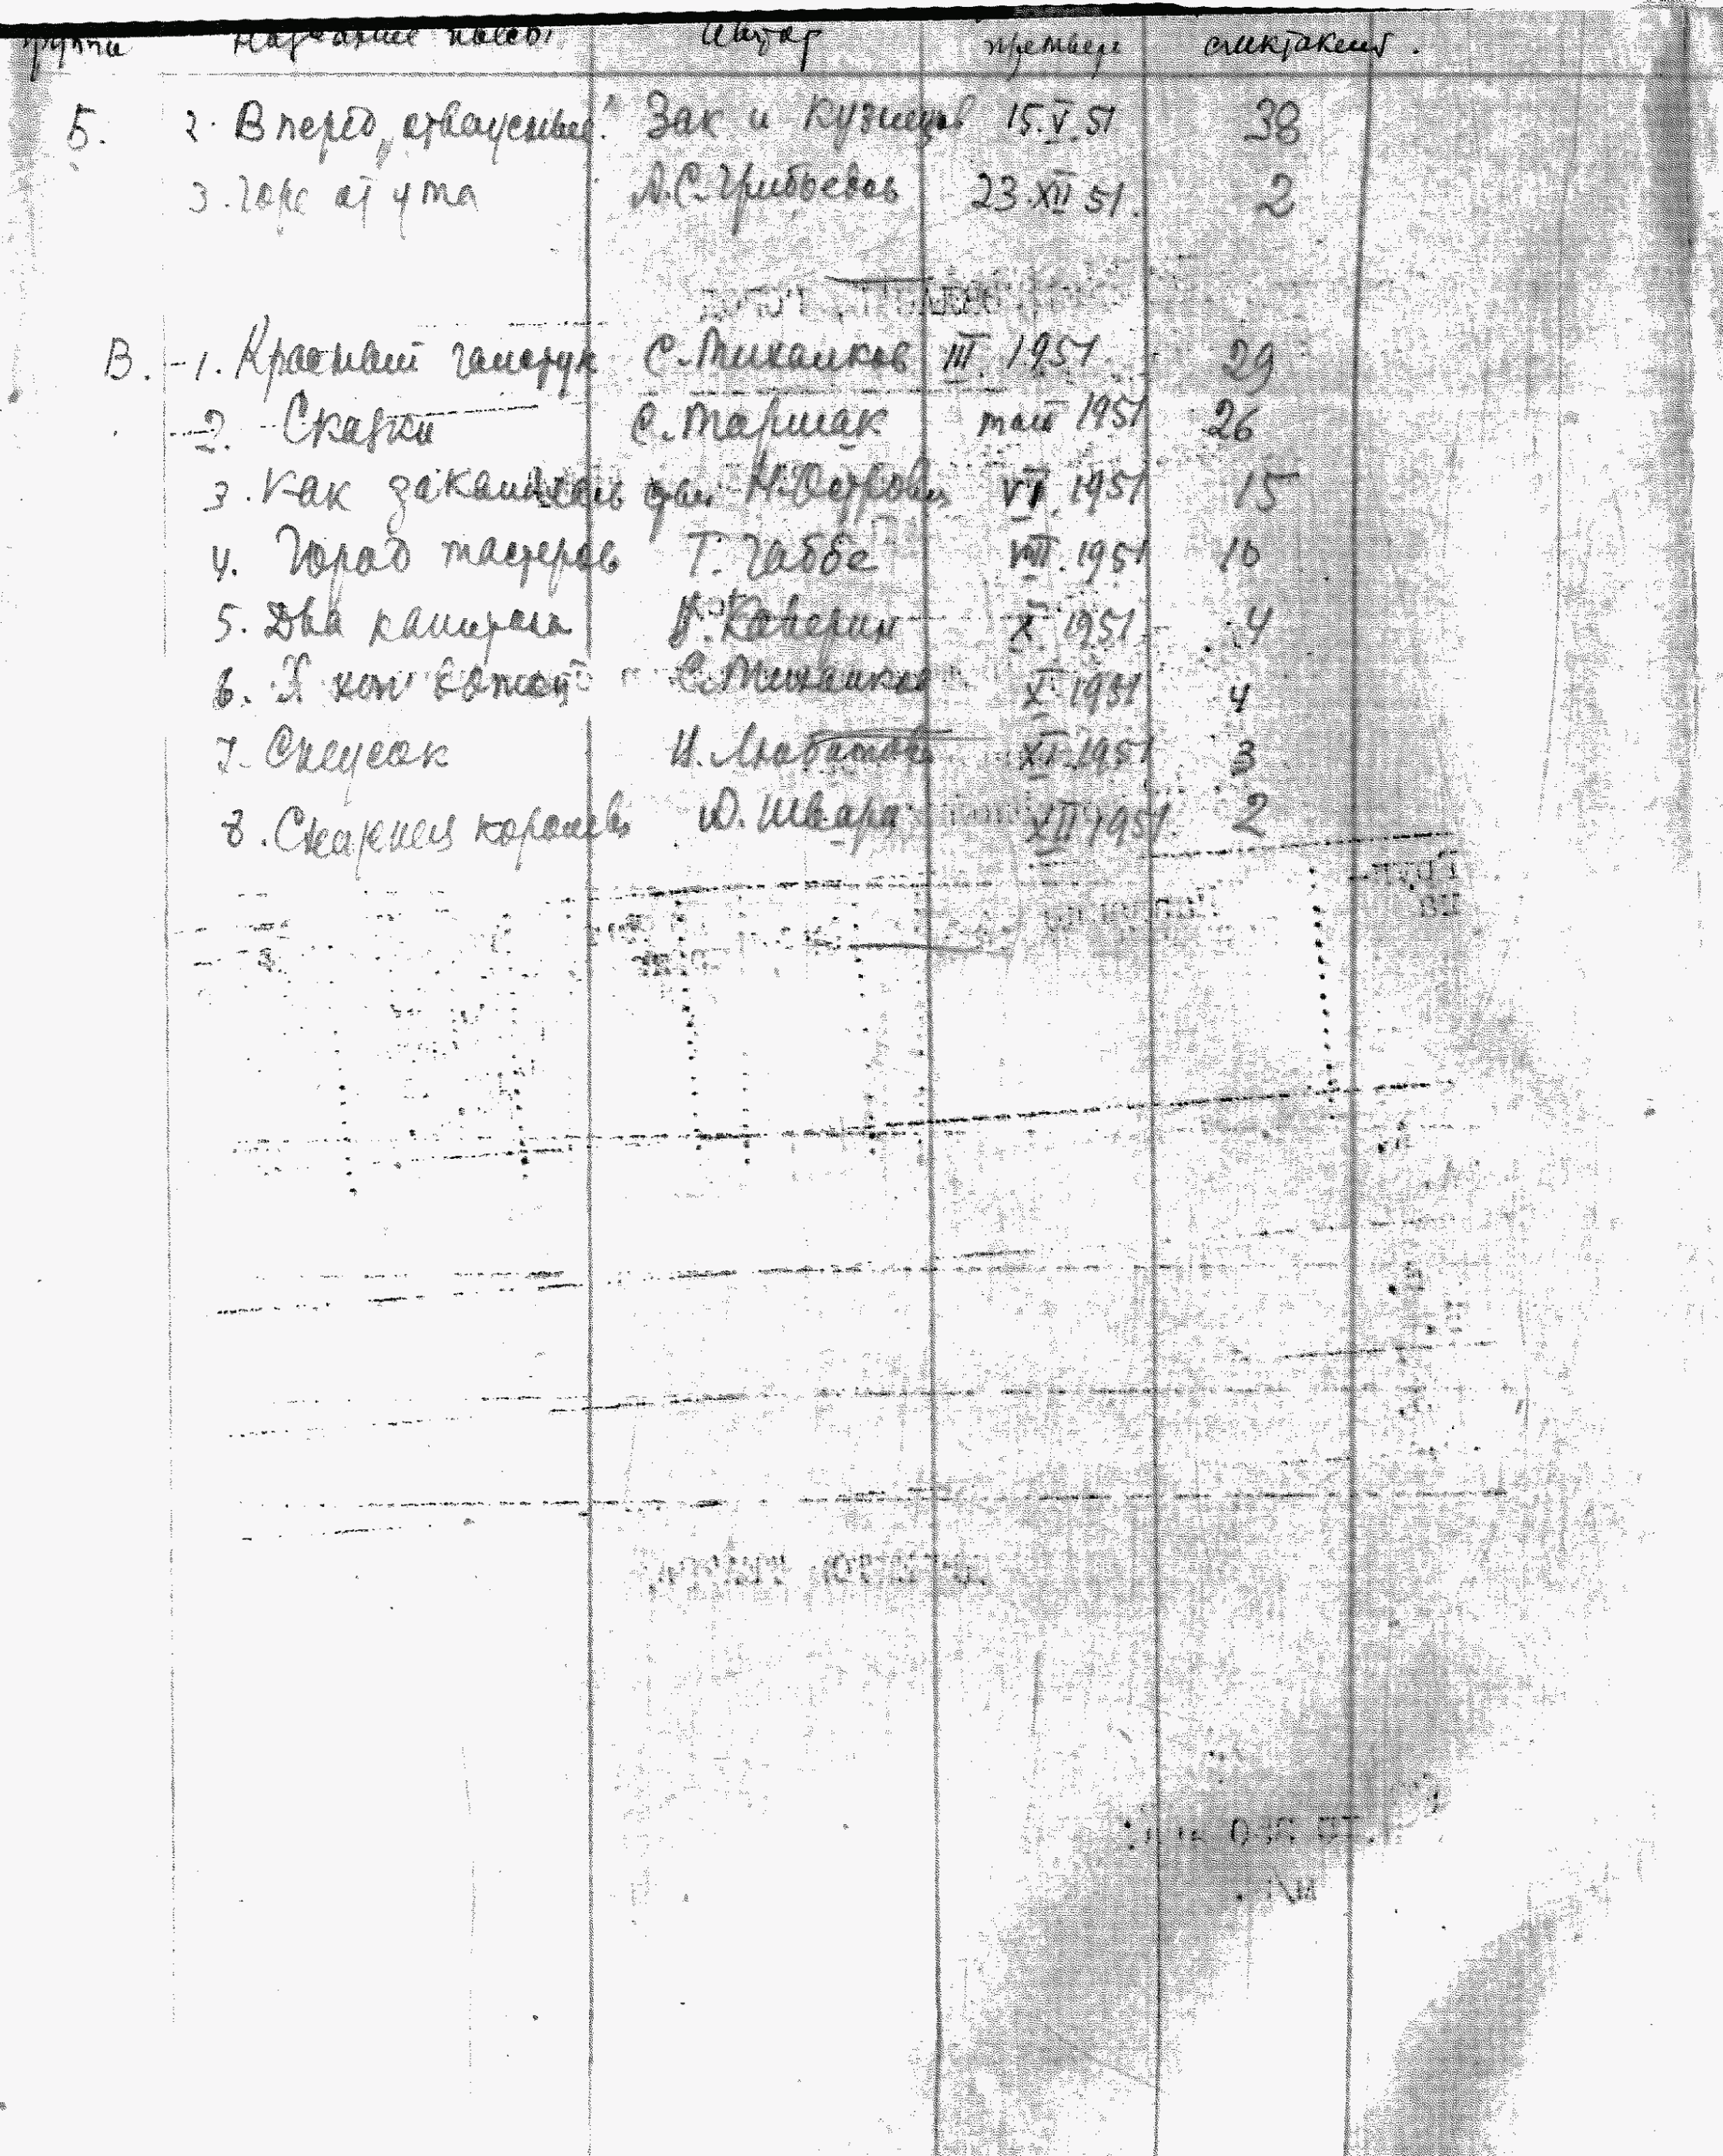 группа Название пьесы Автор премьера спектаклей.
Б. 2. Вперед, отважные! Зак и Кузнецов 15.V.51 38
3. Горе от ума А.С. Грибоедов 23.XII 51. 2
В. -1. Красный галстук С. Михалков III. 1951. 29
2. Сказки С. Маршак май 1951 26
3. Как закалялась сталь Н. Островск VI. 1951 15
4. Город мастеров Т. Габбе VIII. 1951 10
5. Два капитана В. Каверин X 1951 4
6. Я хочу домой С. Михалков X 1951 4
7. Снежок И. Любимова XI. 1951 3
8. Снежная королева Ю. Шварц XII 1951. 2